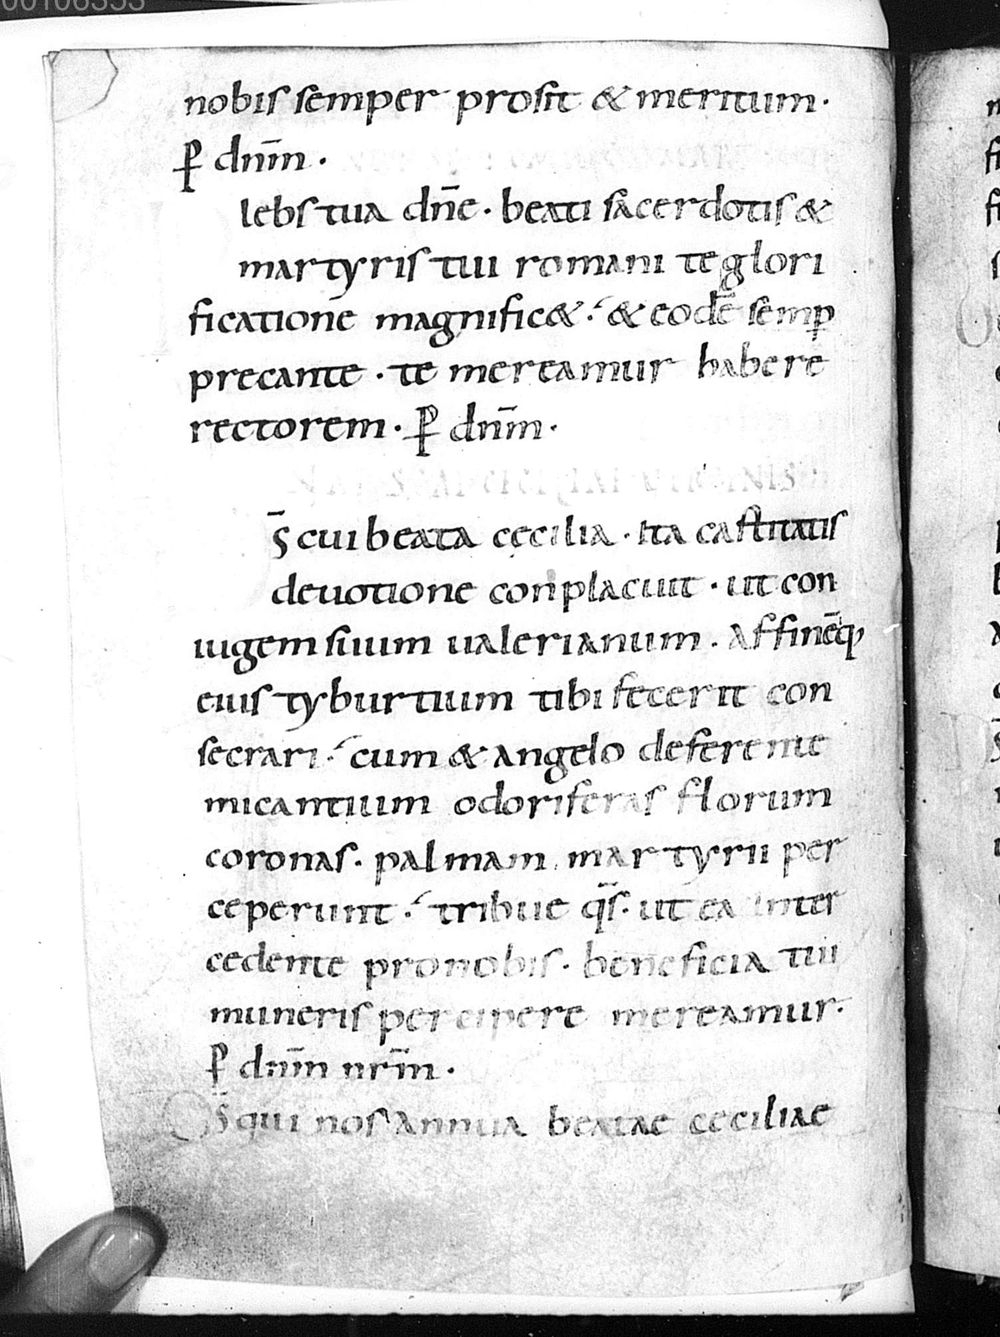 00106353
nobis semper prosit & meritum·
P̄ dn̄m·
lebs tua dn̄e· beati sacerdotis &
martyris tui romani te glori
ficatione magnific&·́ & eodē semp̄
precante· te mereamur habere
rectorem· P̄ dn̄m·
S̄ cui beata cęcilia· Ita castitatis
deuotione conplacuit· ut con
iugem suum ualerianum· Affinēq;
eius tyburtium tibi fecerit con
secrari·́ cum & angelo deferente
micantium odoriferas florum
coronas· palmam martyrii per
ceperunt·́ tribue qs̄· ut ea inter
cedente pro nobis· beneficia tui
muneris percipere mereamur·
P̄ dn̄m nr̄m·
Os̄ qui nos annua beatae ceciliae